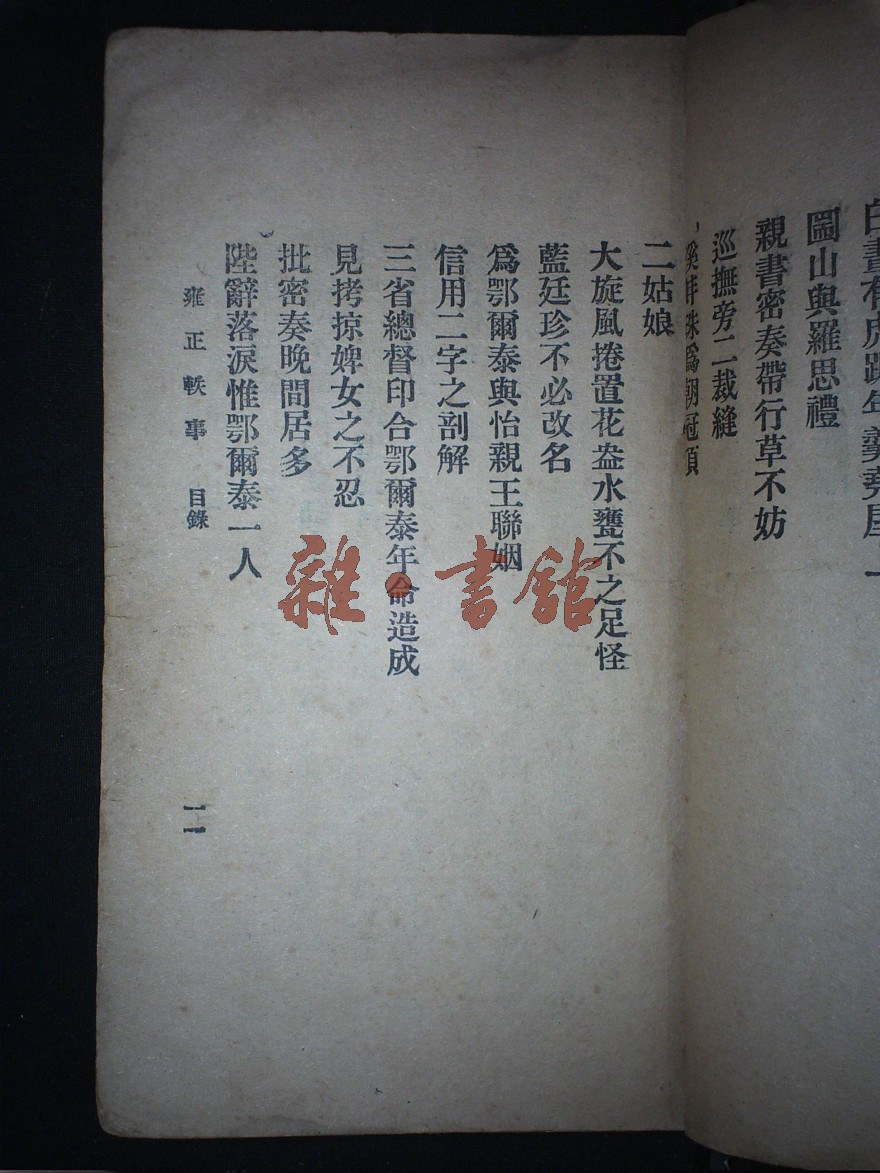 白晝有虎跳年羹堯屋上
圖山與羅思禮
親書密奏帶行草不妨
巡撫旁二裁縫
蚌珠爲朝冠頂
二姑娘
大旋風捲置花盆水甕不之足怪
藍廷珍不必改名
爲鄂爾泰與怡親王聯姻
信用二字之剖解
三省總督印合鄂爾泰年命造成
見拷掠婢女之不忍
批密奏晚間居多
陛辭落淚惟鄂爾泰一人
雍正軼事 目錄
二
雜·書館